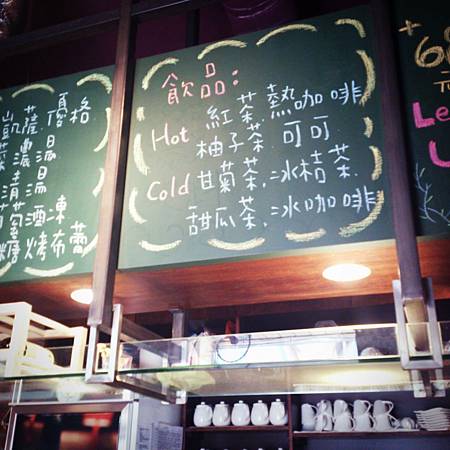 凱薩.優格
菜濃湯
清湯
葡萄酒凍
糖烤布蕾
飲品:
Hot 紅茶.熱咖啡
柚子茶 可可
Cold 甘菊茶.冰桔茶.
甜瓜茶.冰咖啡
+68
元
Le